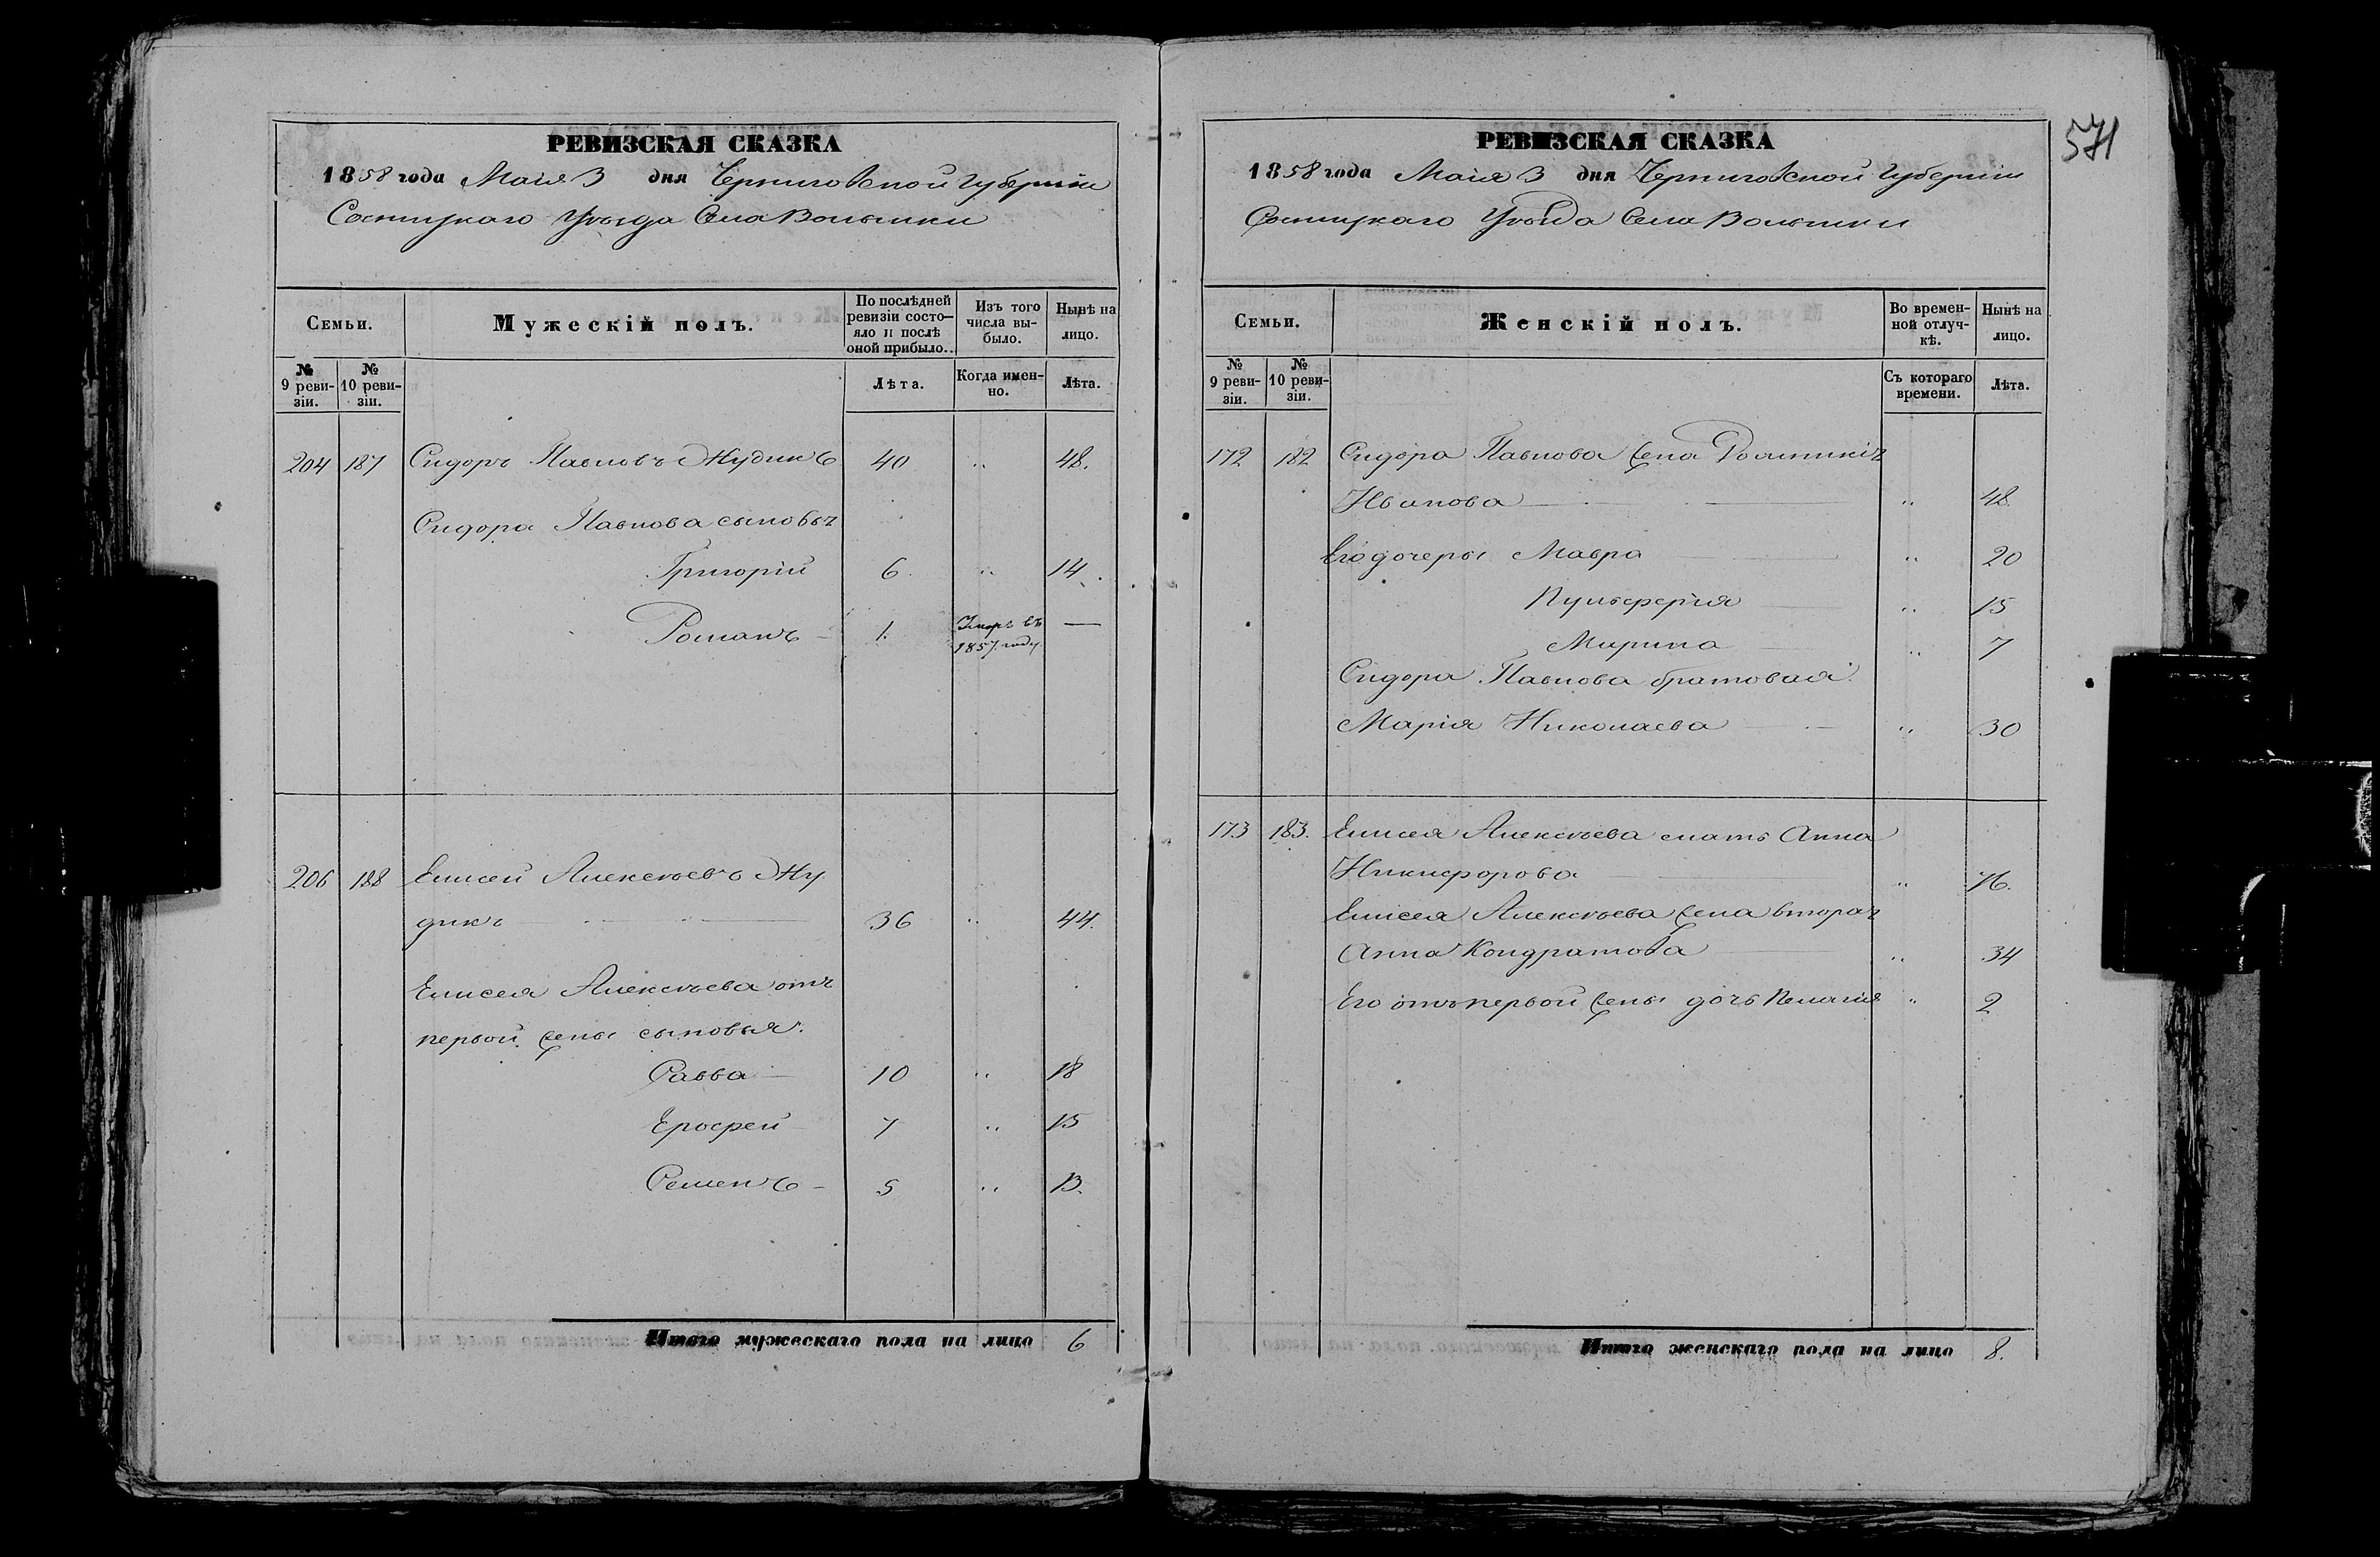 РЕВИЗСКАЯ СКАЗКА
1858 года Маія 3 дня Черниговской Губерніи
Сосницкаго Уѣзда Села Волынки
Семьи. Мужескій полъ. По послѣдней ревизіи состояло и послѣ оной прибыло. Изъ того числа выбыло. Нынѣ на лицо.
№ 9 ревизіи. № 10 ревизіи. Лѣта. Когда именно. Лѣта.
204 187 Сидоръ Павловъ Жудикъ 40 „ 48.
Сидора Павлова сыновья
Григорій 6. „ 14.
Романъ – 1. Умеръ въ 1857. году. —
206 188 Елисей Алексѣевъ Жу
дикъ 36 „ 44.
Елисея Алексѣева отъ
первой жены сыновья:
Савва – 10 „ 18
Ерофей 7 „ 15
Семенъ – 5 „ 13.
Итого мужескаго пола на лицо 6
571
РЕВИЗСКАЯ СКАЗКА
1858 года Маія 3 дня Черниговской Губерніи
Сосницкаго Уѣзда Села Волынки
Семьи. Женскій полъ. Во временной отлучкѣ. Нынѣ на лицо.
№ 9 ревизіи. № 10 ревизіи. Съ котораго времени. Лѣта.
172 182 Сидора Павлова жена
Иванова „ 48.
Его дочеры Мавра „ 20
Пульферія „ 15
Марина „ 7
Сидора Павлова братовая
Марія Николаева „ 30
173 183. Елисея Алексѣева мать Анна
Никифорова „ 76.
Елисея Алексѣева жена вторая
Анна Кондратова „ 34
Его отъ первой жены дочь Пелагія „ 2
Итого женскаго пола на лицо 8.